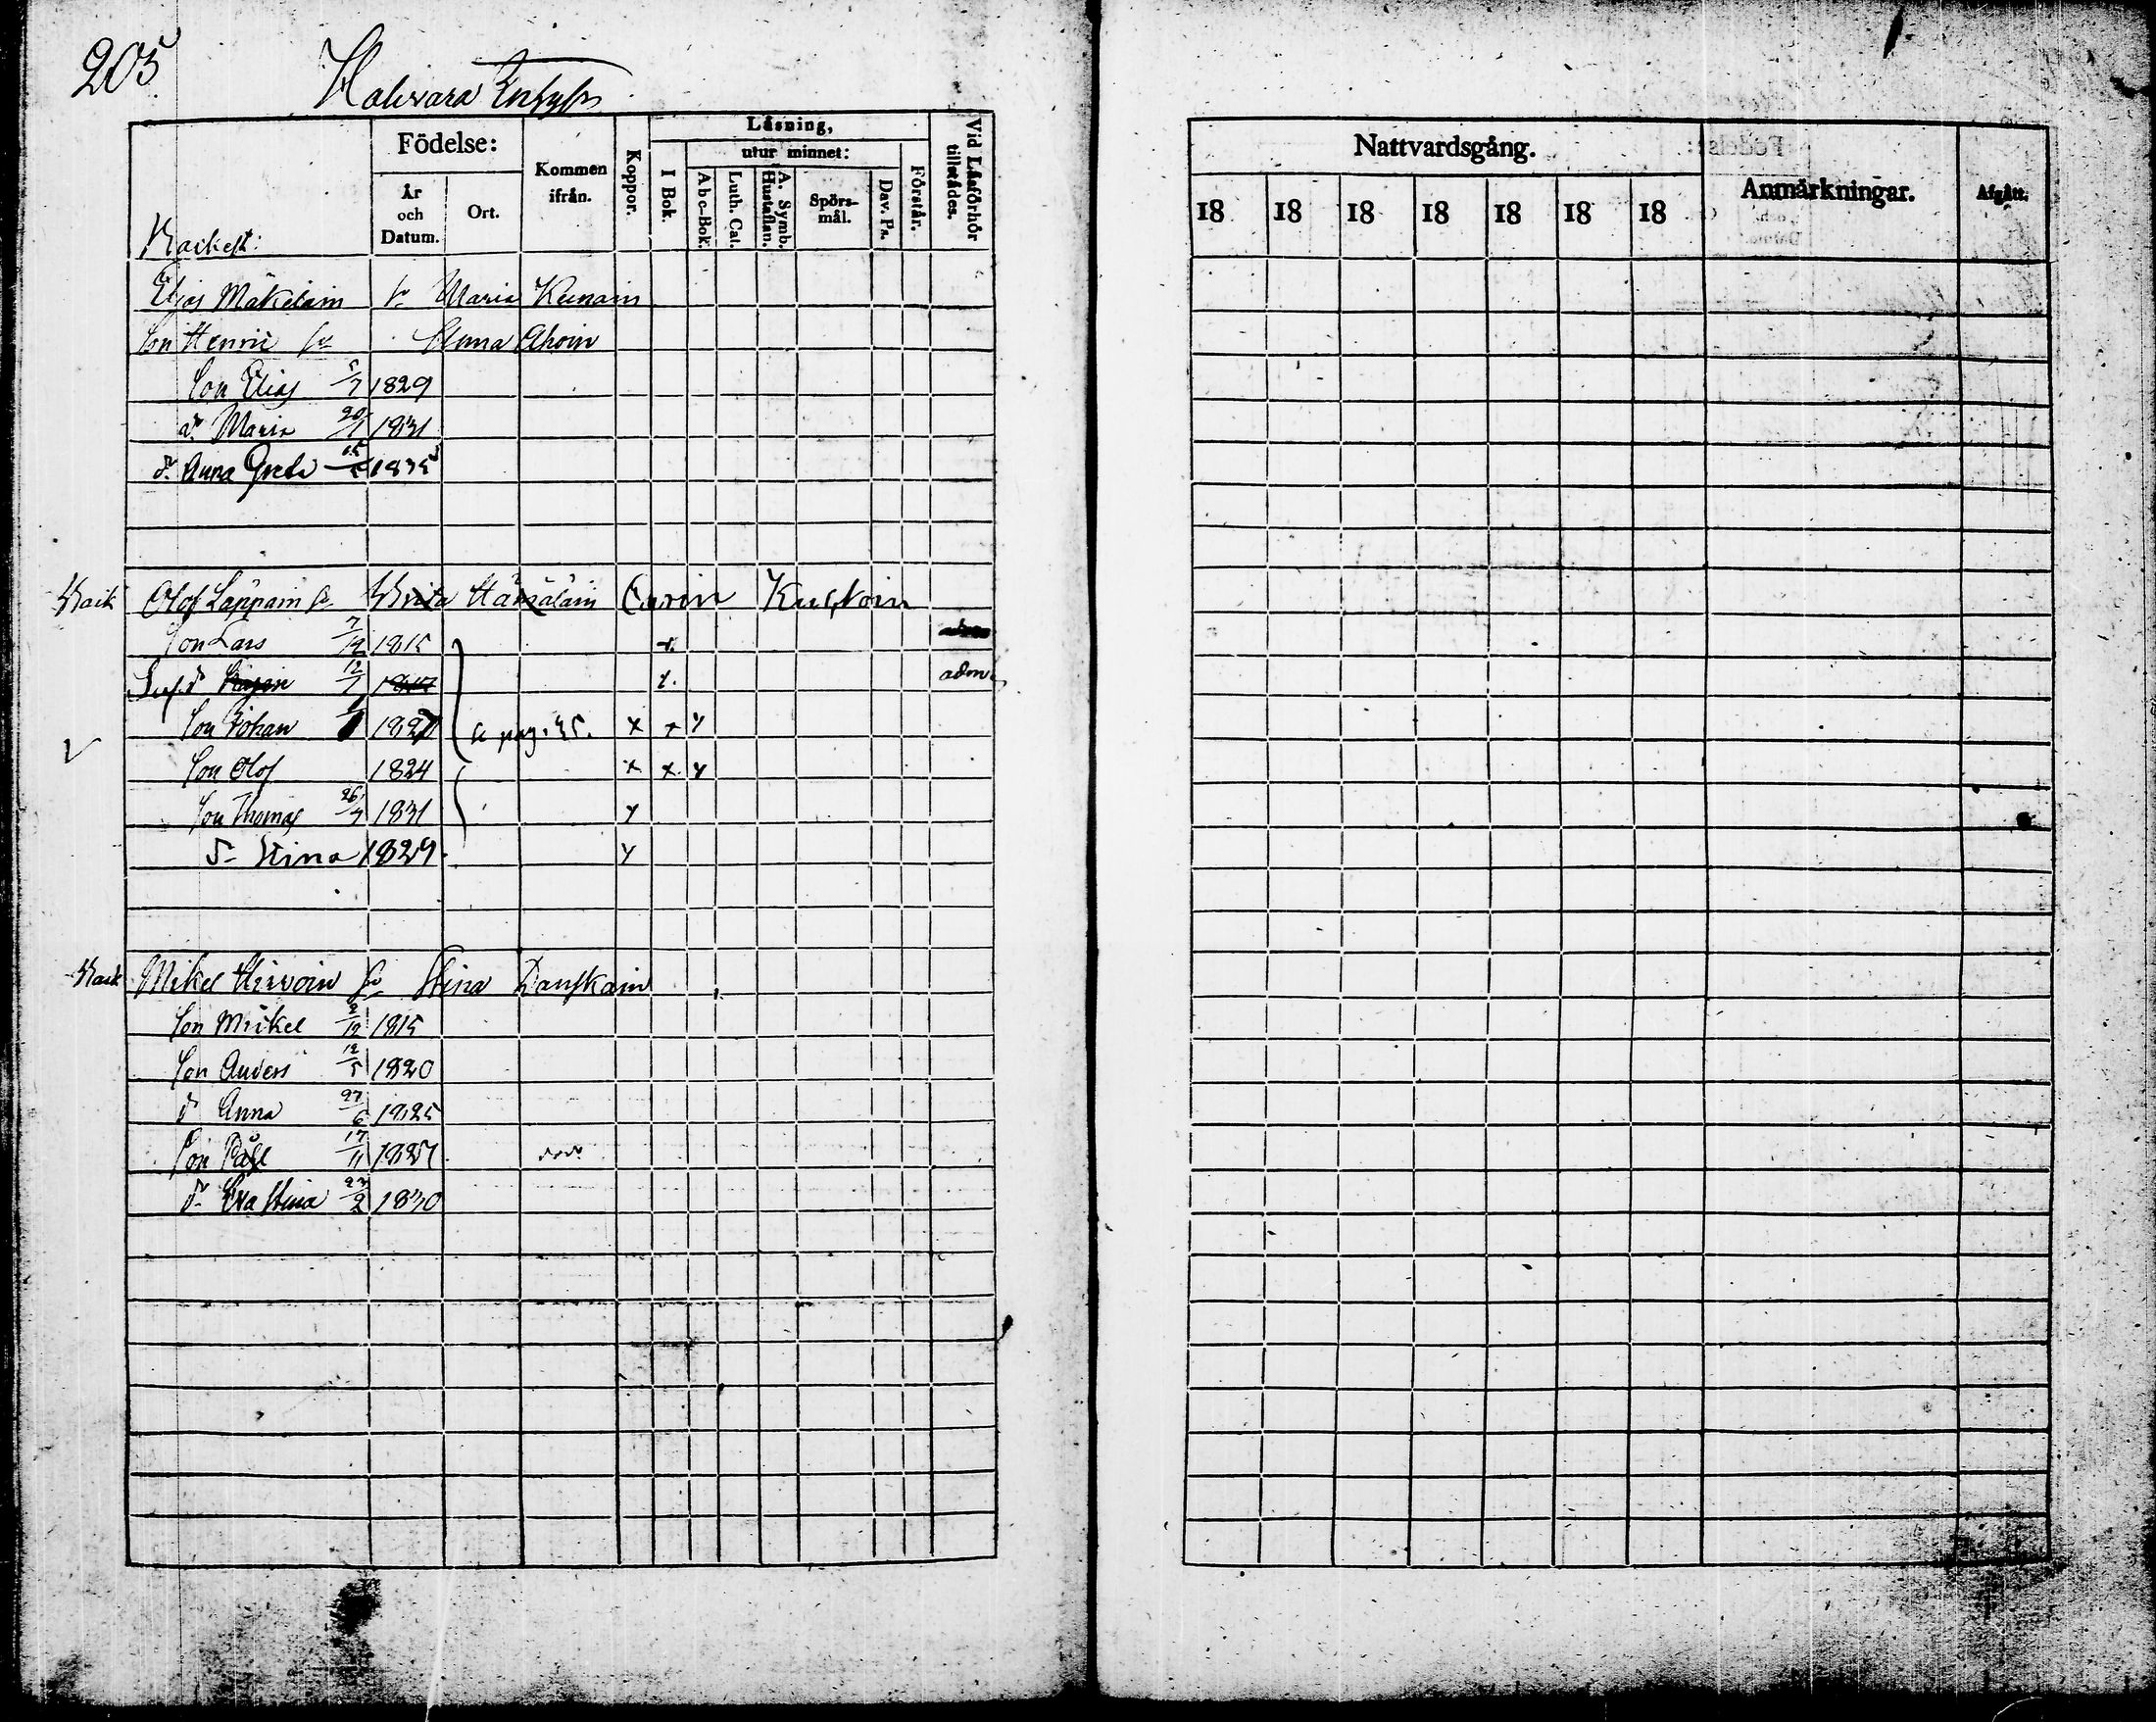 205
Halivara
Födelse:
Kommen ifrån.
Koppor.
Läsning,
utur minnet:
I Bok.
Abc-Bok.
Luth. Cat.
A. Symb. Hustaflan.
Spörsmål.
Dav. Ps.
Förstår.
Vid Läsförhör tillstådes.
År och Datum.
Ort.
Elias Mäkeläin h. Maria Keinain
Son Henric hu Anna Ahoin
Son Elias 5/7 1829
dr Maria 20/1 1831
dr Anna Greta 15/5 1835
Olof Läppäin hu Brita Hämäläin Carin Kustoin
Son Lars 7/12 1815 x
12/7 1817 x. adm
Son Johan 1820 se pag. 35. x x y
Son Olof 1824 x x y
Son Thomas 26/4 1831 y
d- Stina 1829 y
Mikel Hirvoin hu Stina Danskain
Son Mickel 2/12 1815
Son Anders 12/5 1820
dr Anna 27/6 1825
Son Påhl 17/11 1827
dr Eva Stina 23/2 1830
Nattvardsgång.
18 18 18 18 18 18 18
Anmärkningar.
Afgått.